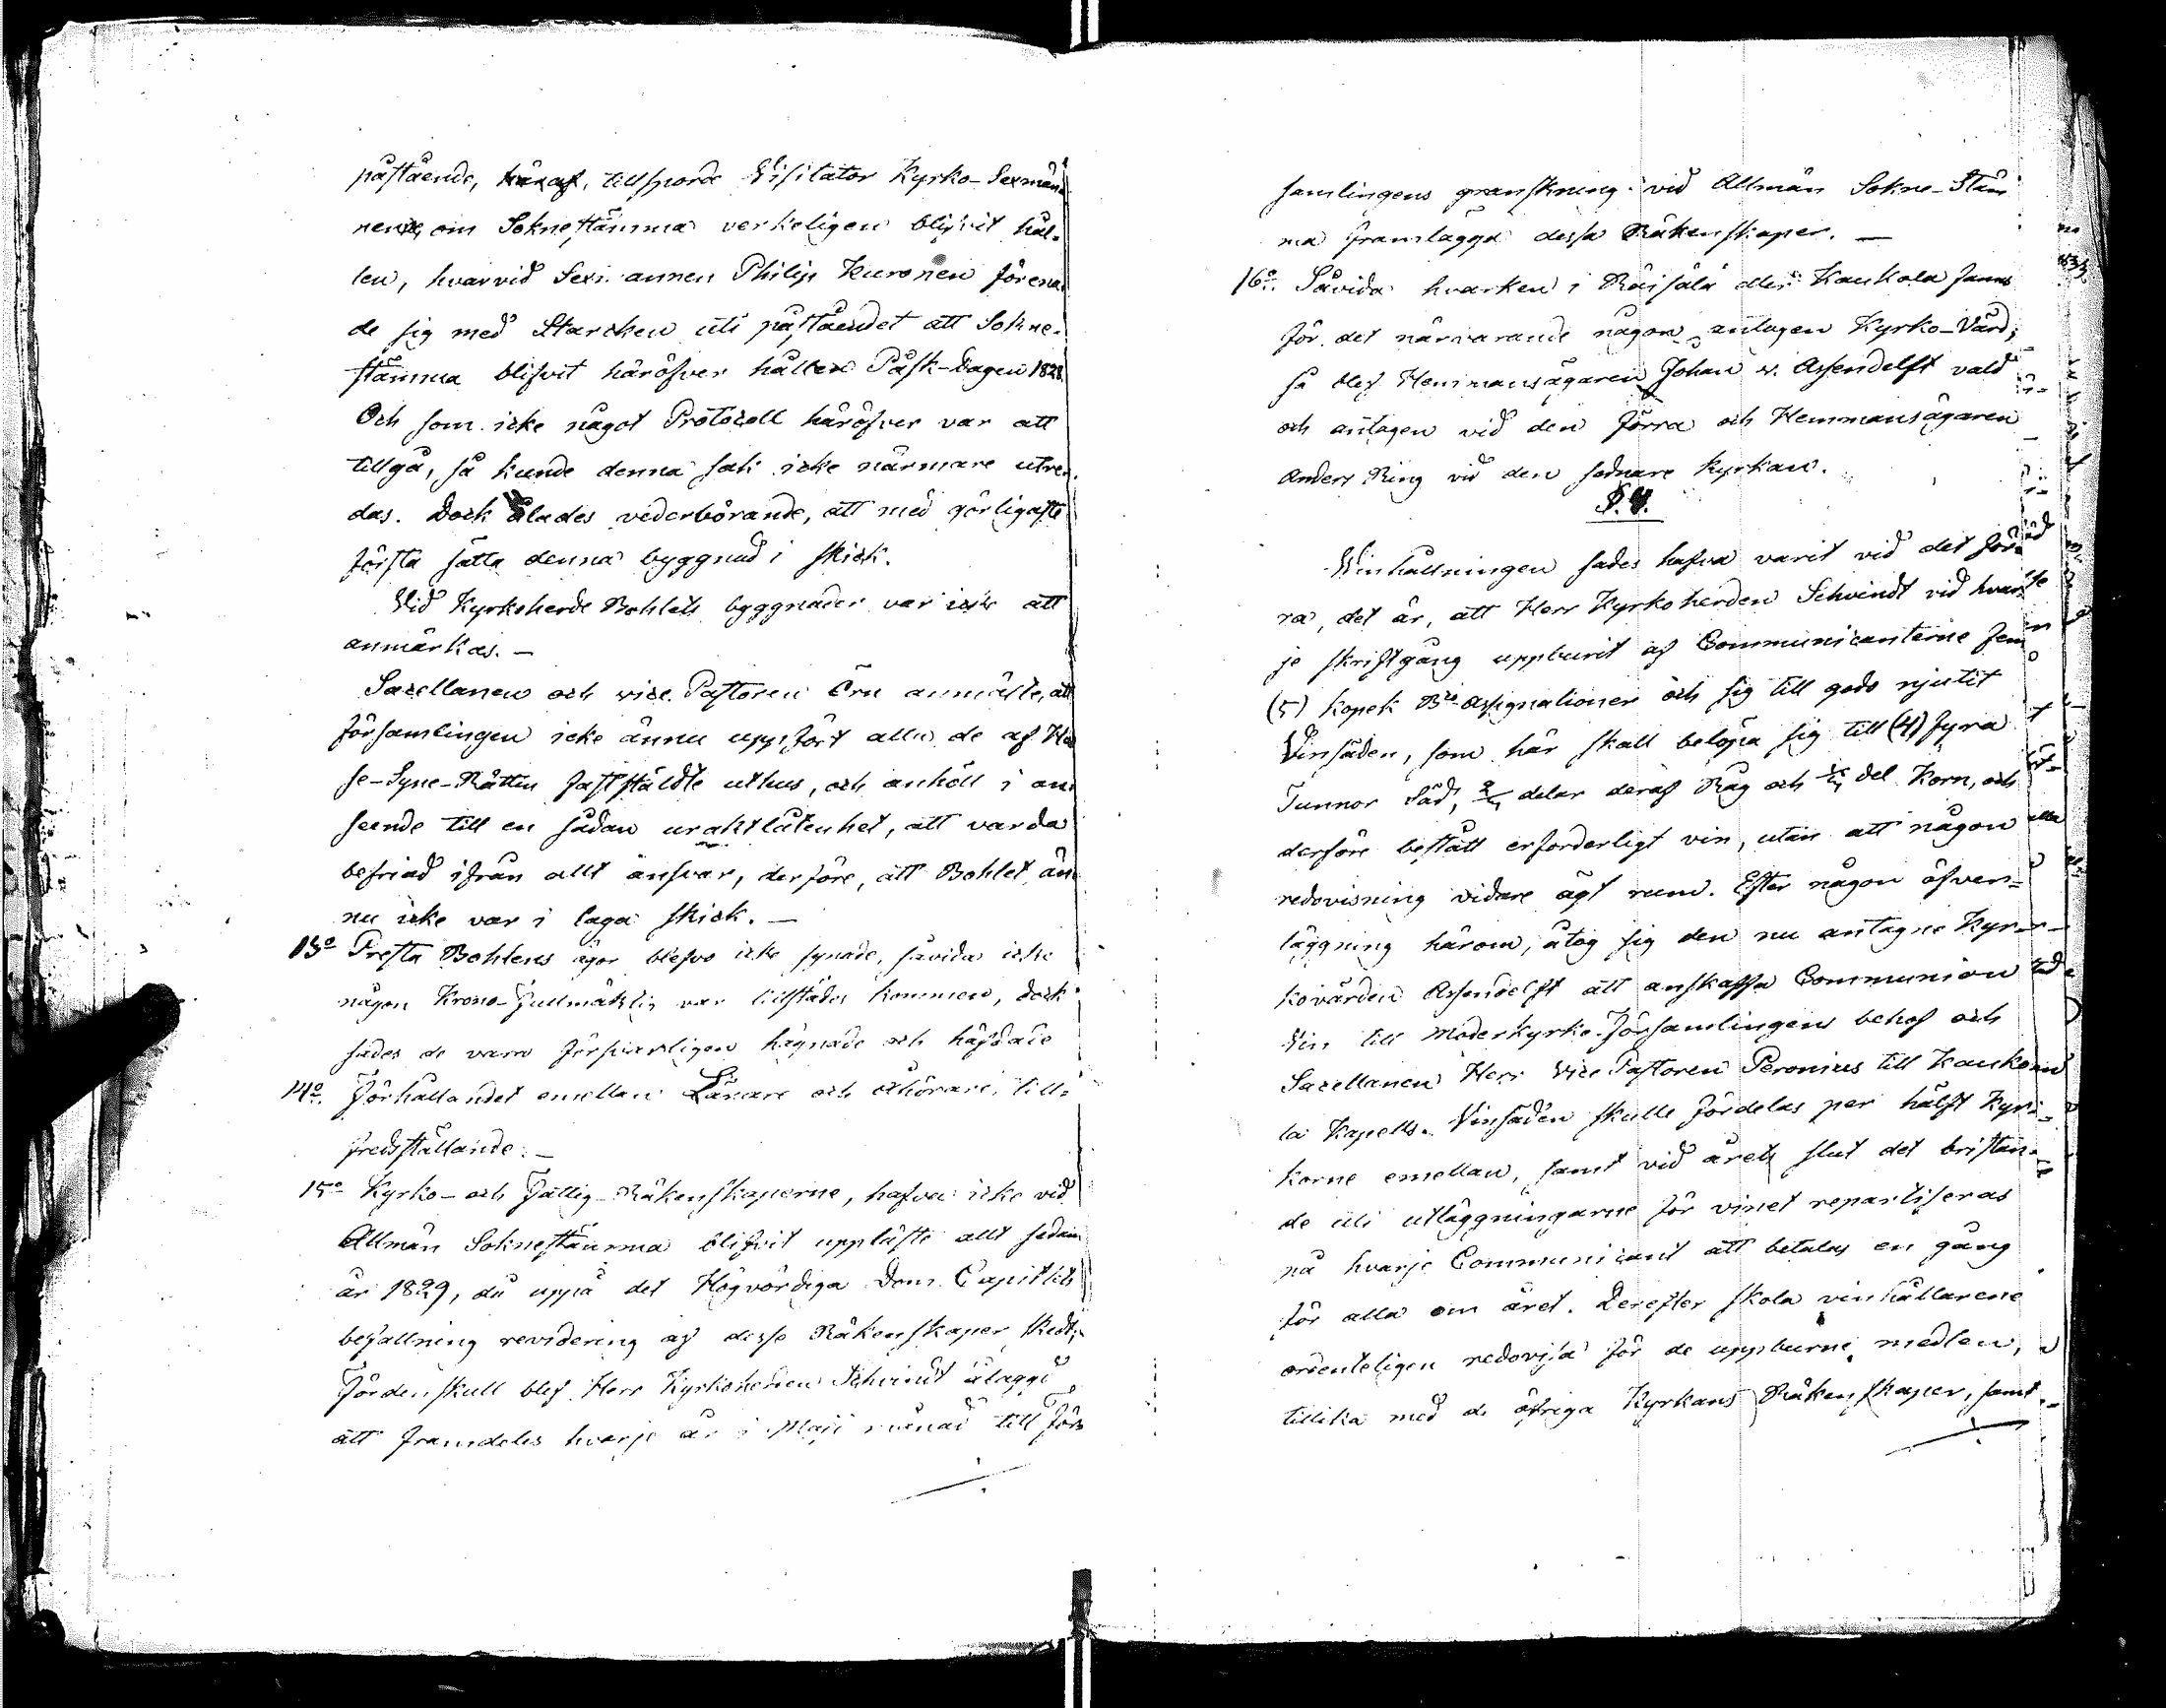 påstående, häraf, tillsporde Visitator Kyrko-Sexmän
nerne, om Sokneståmma verkeligen blifvit hål-
len, hvarvid Sexmannen Philip Kuronen förena-
de sig med Starcken uti påståendet att Sokne-
stämma blifvit häröfver hållen Påsk-Dagen 1828.
Och som icke något Protocoll häröfver var att
tillgå, så kunde denna sak icke närmare utre-
das. Dock ålades vederbörande, att med görligaste
första sätta denna byggnad i skick.
Vid Kyrkoherde Bohlets byggnader var icke att
anmärkas. –
Sacellanen och vice Pastoren Orn anmälte, att
församlingen icke ännu uppfört alla de af Hu
se-Syne-Rätten fastställdte uthus, och anhöll i an-
seende till en sådan uraktlåtenhet, att varda
befriad ifrån allt ansvar, derföre, att Bohlet än-
nu icke var i laga skick. –
13o Presta Bohlens ägor blefvo icke synade, såvida icke
någon Krono-Fullmäktig var tillstädes kommen, dock
sades de vara försvarligen hägnade och häfdade
14o. Förhållandet emellan Lärare och Åhörare, till-
fredsställande. –
15o Kyrko- och Fattig-Räkenskaperne, hafva icke vid
Allmän Sokneståmma blifvit uppläste allt sedan
år 1829, då uppå det Högvördiga Dom Capitlets
befallning revidering af desse Räkenskaper skedt;
Fördenskull blef Herr Kyrkoherden Schvindt ålaggd
att framdeles hvarje år i Maji månad till För-
samlingens granskning vid Allmän Sokne-Stäm
ma framlägga dessa Räkenskaper. –
16o. Såvida hvarken i Räisälä eller Kaukola fanns
för det närvarande någon antagen Kyrko-Värd;
så blef Hemmansägaren Johan v. Assendelft vald
och antagen vid den förra och Hemmansägaren
Anders Ring vid den sednare kyrkan.
§. 4.
Vinhållningen sades hafva varit vid det för-
ra, det är, att Herr Kyrkoherden Schvindt vid hvar-
je skriftgång uppburit af Communicanterne fem
(5) Kopek Bco Assignationer och sig till godo njutit
Vinsäden, som här skall belöpa sig till (4) fyra
Tunnor Säd, delar deraf Råg och del Korn, och
derföre bestått erforderligt vin, utan att någon
redovisning vidare ägt rum. Efter någon öfver-
läggning härom, åtog sig den nu antagne Kyr-
kovärden Assendelft att anskaffa Communion
Vin till Moderkyrko-Församlingens behof och
Sacellanen Herr Vice Pastoren Peronius till Kauko
la Kapells. Vinsäden skulle fördelas per hälft Kyr-
korne emellan, samt vid årets slut det bristan-
de uti utläggningarne för vinet repartiseras
på hvarje Communicant att betalas en gång
för alla om året. Derefter skola vinhållarene
ordenteligen redovisa för de uppburne medlen,
tillika med de öfriga Kyrkans Räkenskaper, samt